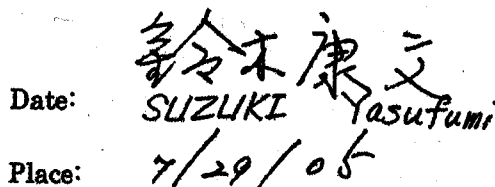 鈴木康文
Date: SUZUKI Yasufumi
Place: 7/29/05